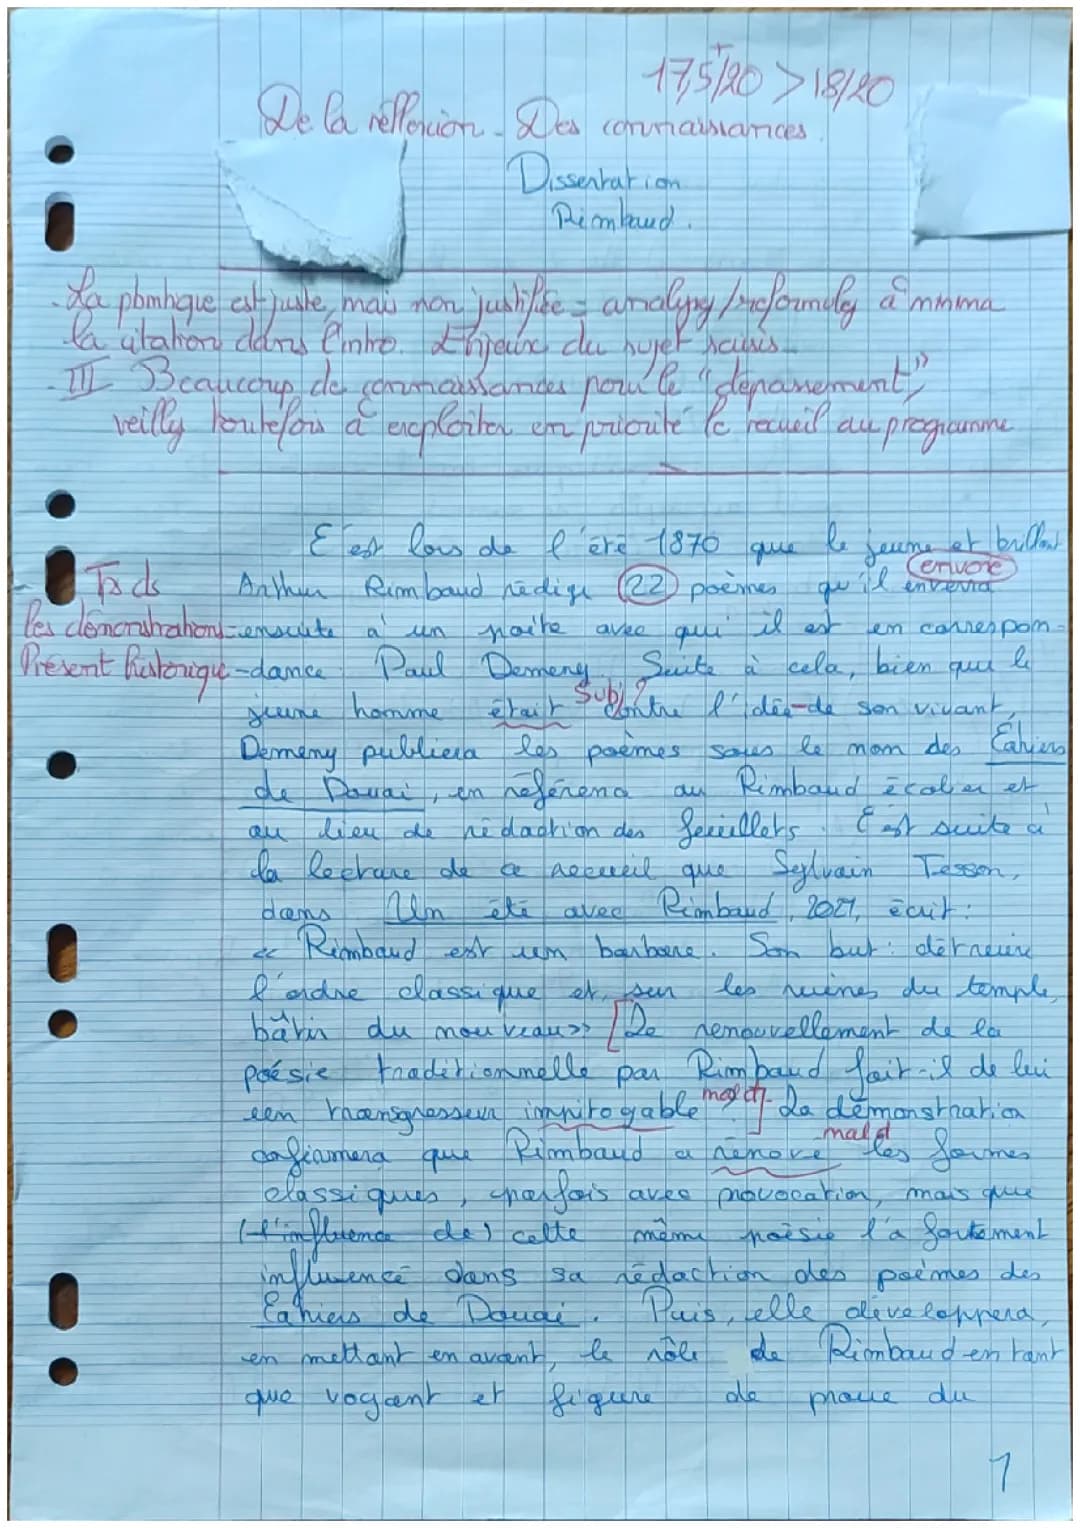 17,5/20 > 18/20
De la réflexion - Des connaissances.
Dissertation
Rimbaud.
- La pbmtique est juste, mais non justifiée = analysez/reformulez a minima
la citation dans l'intro. Enjeux du sujet saisis.
- III Beaucoup de connaissances pour le "dépassement",
veillez toutefois à exploiter en priorité le recueil au programme
C'est lors de l'été 1870 que le jeune et brillant
envoie
Tps ds
Arthur Rimbaud rédige 22 poèmes qu'il enverra
les démonstrations =
ensuite à un poète avec qui il est en correspon-
Présent historique
-dance Paul Demeny. Suite à cela, bien que le
Subj ?
jeune homme était contre l'idée de son vivant,
Demeny publiera les poèmes sous le nom des Cahiers
de Douai, en référence au Rimbaud écolier et
au lieu de rédaction des feuillets. C'est suite à
la lecture de ce recueil que Sylvain Tesson,
dans Un été avec Rimbaud, 2021, écrit:
<< Rimbaud est un barbare. Son but: détruire
l'ordre classique et, sur les ruines du temple,
bâtir du nouveau>> [Le renouvellement de la
poésie traditionnelle par Rimbaud fait-il de lui
mal dt
un transgresseur impitoyable ?] La démonstration
mal dt
confirmera que Rimbaud a rénové les formes
classiques, parfois avec provocation, mais que
(l'influence de) cette même poésie l'a fortement
influencé dans sa rédaction des poèmes des
Cahiers de Douai. Puis, elle développera,
en mettant en avant, le rôle de Rimbaud en tant
que voyant et figure de proue du
1